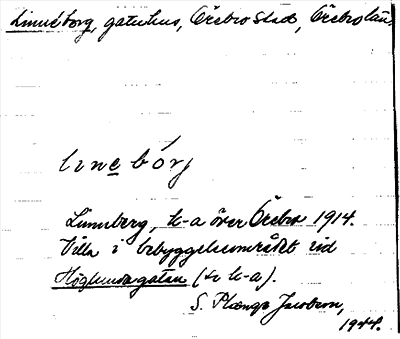 Linneborg, gatuhus, Örebro stad, Örebro län.
linebórj
Linneberg, k-a över Örebro 1914.
Villa i bebyggelseområdet vid
Höglundagatan (se k-a).
S. Plænge Jacobson,
1944.